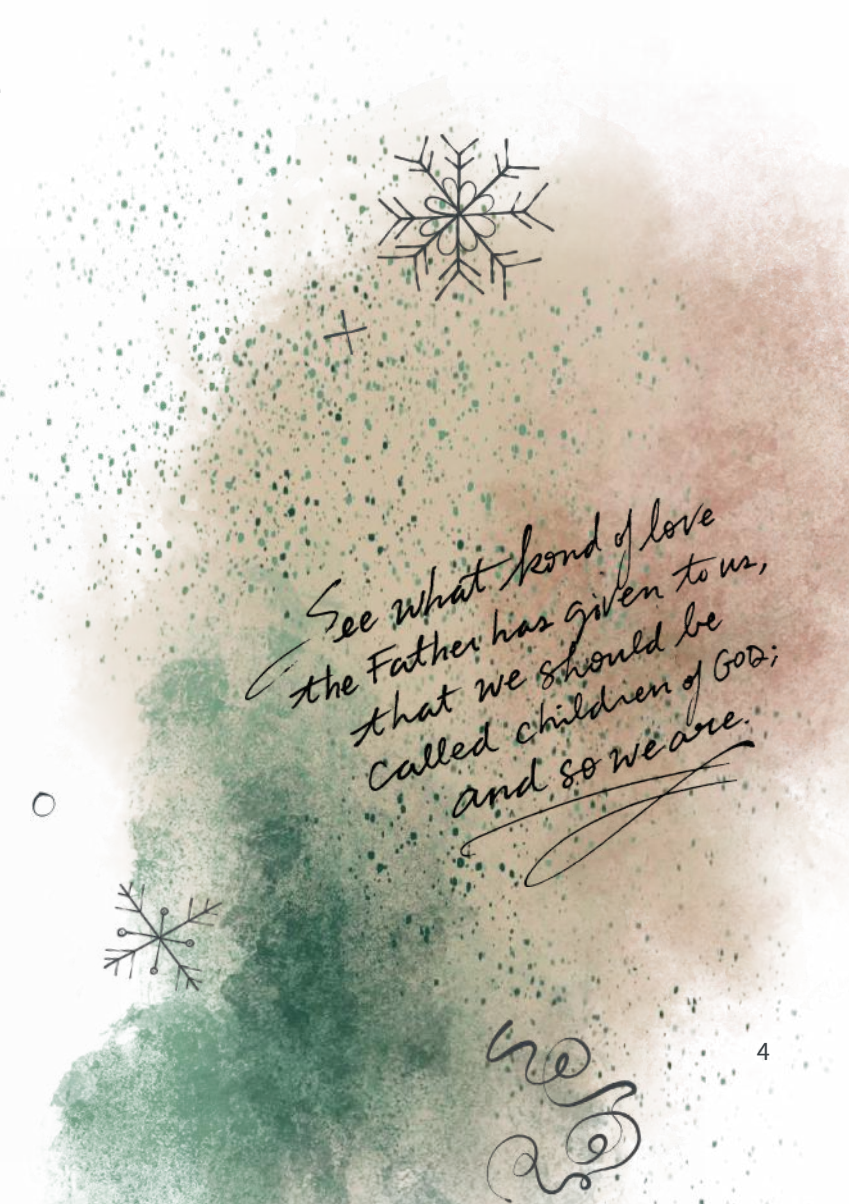 See what kond of love
the Father has given to us,
that we should be
called children of GOD;
and so we are.
4